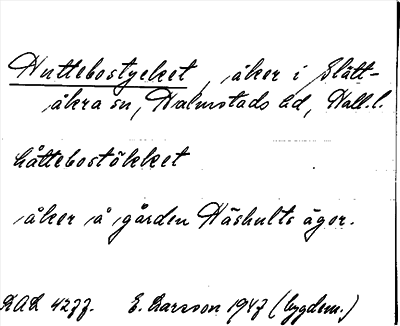 Huttebostycket, åker i Slätt-
åkra sn, Halmstads hd, Hall.l.
håttebostökket
åker å gården Häshults ägor.
KAL 4277. E. Larsson 1947 (bygdem.)